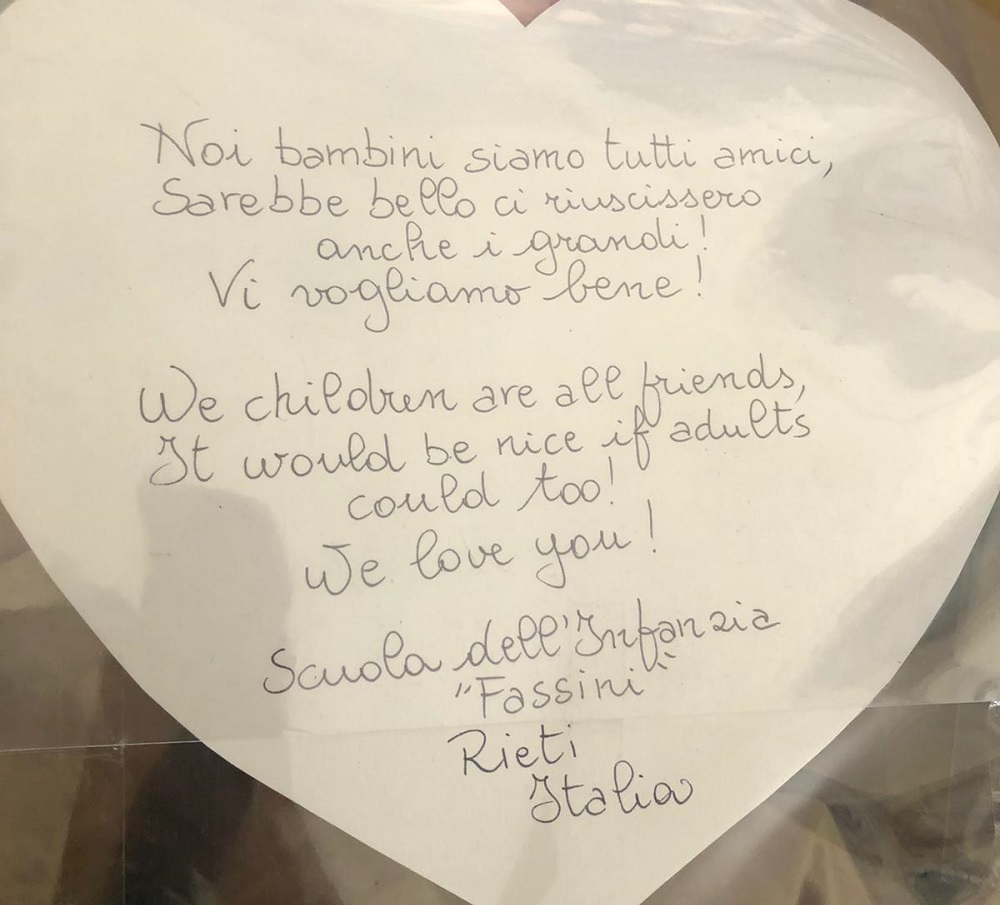 Noi bambini siamo tutti amici,
Sarebbe bello ci riuscissero
anche i grandi!
Vi vogliamo bene!
We children are all friends,
It would be nice if adults
could too!
We love you!
Scuola dell'Infanzia
"Fassini"
Rieti
Italia